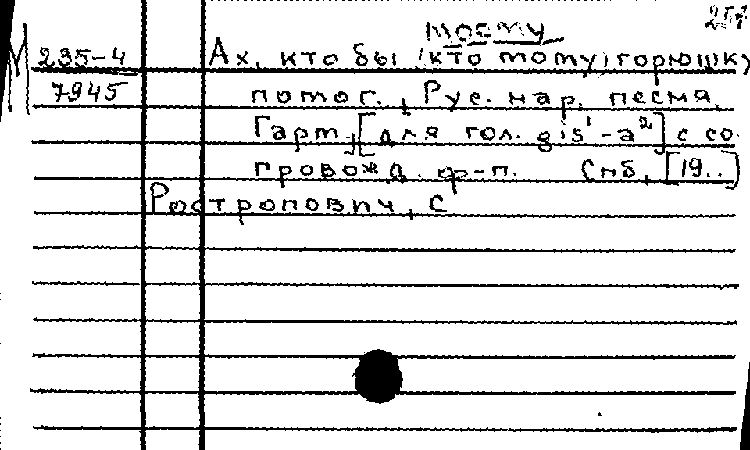 257
моему
М 235-4 Ах, кто бы (кто тому) горюшку
7945 помог. Рус. нар. песня.
Гарм. [для гол. gis¹-a²] с со-
провожд. ф-п. Спб, [19..]
Ростропович, С